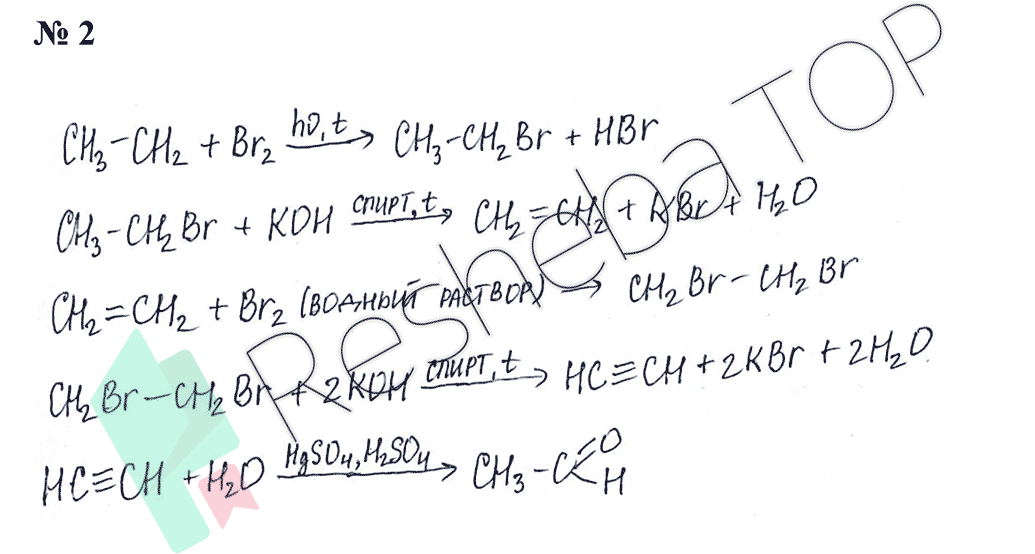 № 2
CH₃-CH₂ + Br₂ hν, t → CH₃-CH₂Br + HBr
CH₃-CH₂Br + KOH спирт, t → CH₂=CH₂ + KBr + H₂O
CH₂=CH₂ + Br₂ (водный раствор) → CH₂Br-CH₂Br
CH₂Br-CH₂Br + 2KOH спирт, t → HC≡CH + 2KBr + 2H₂O
HC≡CH + H₂O HgSO₄, H₂SO₄ → CH₃-C=O H
Resheba TOP